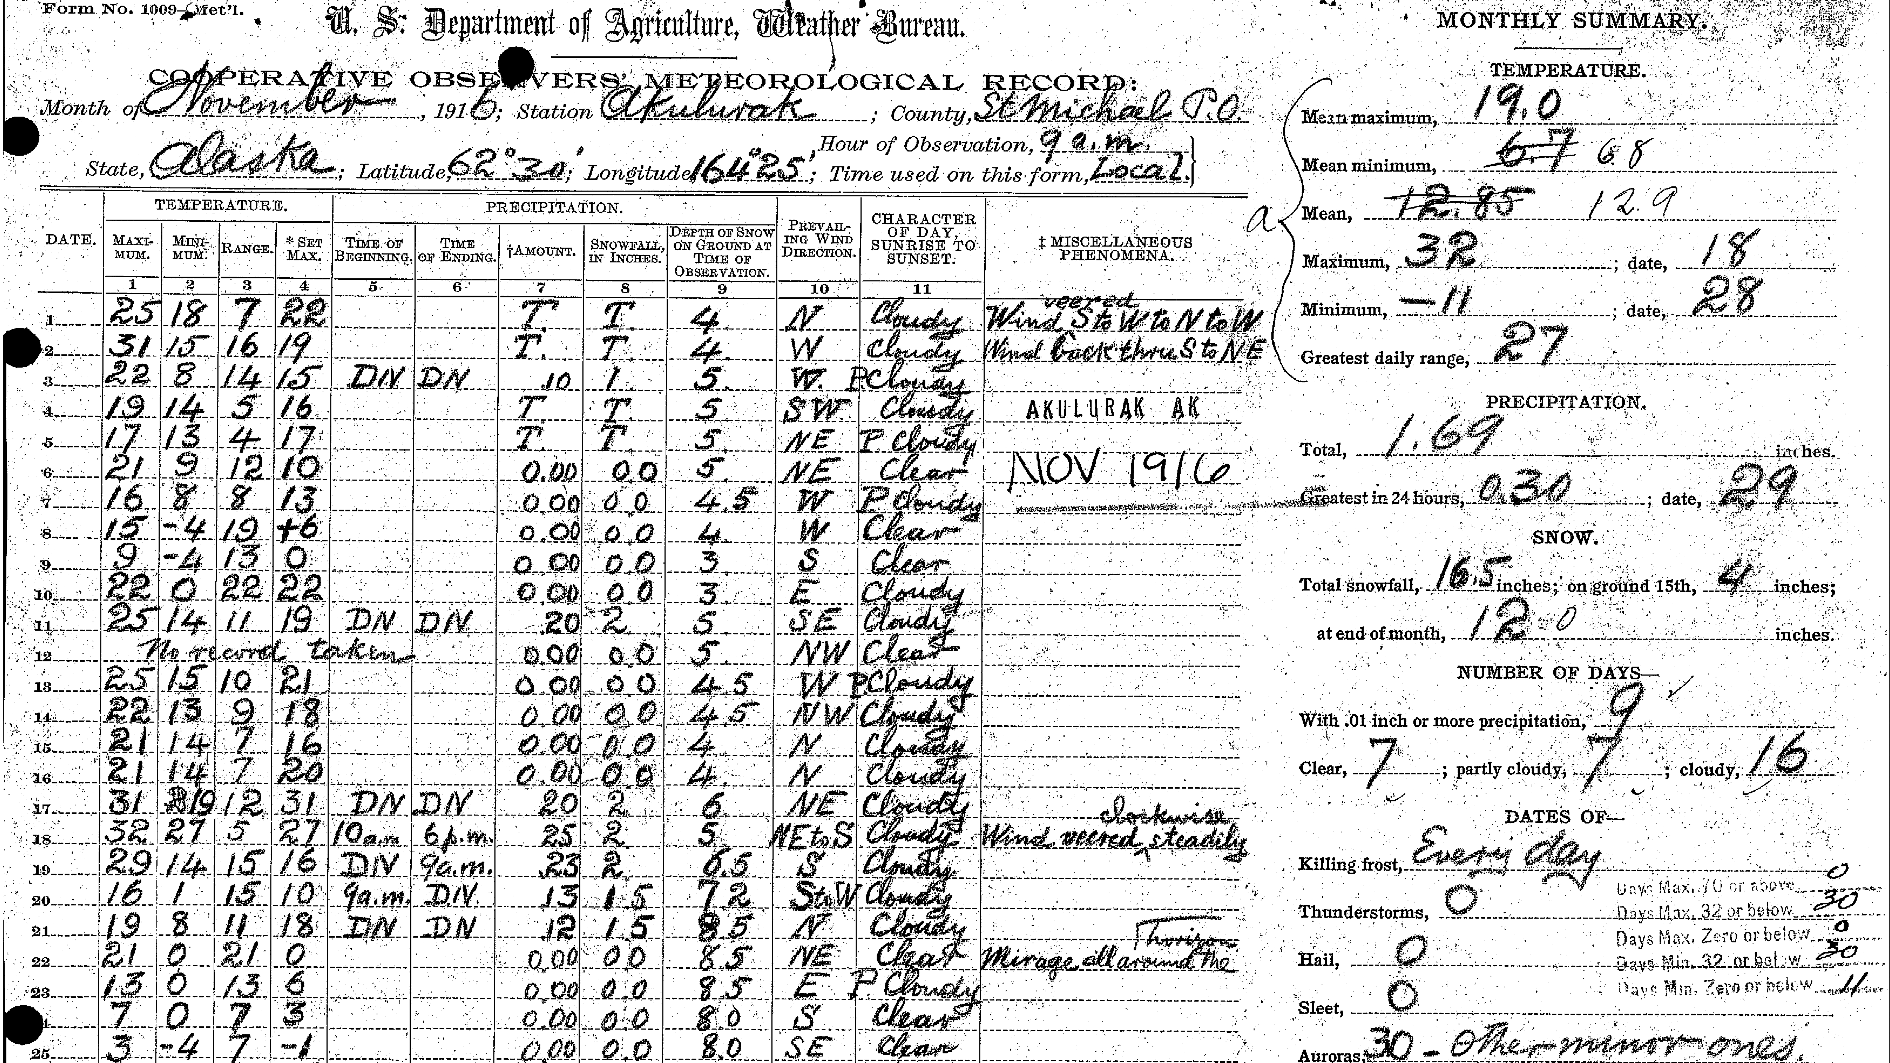 Form No. 1009—Met'l.
U. S. Department of Agriculture, Weather Bureau.
COOPERATIVE OBSERVERS' METEOROLOGICAL RECORD:
Month of November, 1916; Station Akulurak; County, St Michael P.O.
State, Alaska; Latitude, 62° 30'; Longitude 164° 25'; Hour of Observation, 9 a.m. Time used on this form, Local.
TEMPERATURE. PRECIPITATION.
DATE. MAXIMUM. MINIMUM. RANGE. * SET MAX. TIME OF BEGINNING. TIME OF ENDING. †AMOUNT. SNOWFALL, IN INCHES. DEPTH OF SNOW ON GROUND AT TIME OF OBSERVATION. PREVAILING WIND DIRECTION. CHARACTER OF DAY, SUNRISE TO SUNSET. ‡ MISCELLANEOUS PHENOMENA.
1 2 3 4 5 6 7 8 9 10 11
1 25 18 7 22 T. T. 4 N Cloudy Wind veered S to W to N to W
2 31 15 16 19 T. T. 4. W Cloudy Wind back thru S to NE
3 22 8 14 15 DN DN .10 1. 5. W. P Cloudy
4 19 14 5 16 T. T. 5 SW Cloudy AKULURAK AK
5 17 13 4 17 T. T. 5. NE P Cloudy
6 21 9 12 10 0.00 0.0 5. NE Clear NOV 1916
7 16 8 8 13 0.00 0.0 4.5 W P Cloudy
8 15 -4 19 +6 0.00 0.0 4 W Clear
9 9 -4 13 0 0.00 0.0 3 S Clear
10 22 0 22 22 0.00 0.0 3 E Cloudy
11 25 14 11 19 DN DN .20 2 5 SE Cloudy
12 No record taken 0.00 0.0 5. NW Clear
13 25 15 10 21 0.00 0.0 4.5 W P Cloudy
14 22 13 9 18 0.00 0.0 4.5 NW Cloudy
15 21 14 7 16 0.00 0.0 4 N Cloudy
16 21 14 7 20 0.00 0.0 4. N Cloudy
17 31 19 12 31 DN DN 20 2. 6 NE Cloudy
18 32 27 5 27 10 a.m 6 p.m. 25 2 5 NE to S Cloudy Wind veered clockwise steadily
19 29 14 15 16 DN 9 a.m. .23 2. 6.5 S Cloudy
20 16 1 15 10 9 a.m. DN. .13 1.5 7.2 S to W Cloudy
21 19 8 11 18 DN DN .12 1.5 8.5 N Cloudy
22 21 0 21 0 0.00 0.0 8.5 NE Clear Mirage all around the horizon
23 13 0 13 6 0.00 0.0 8.5 E P Cloudy
7 0 7 3 0.00 0.0 8.0 S Clear
25 3 -4 7 -1 0.00 0.0 8.0 SE Clear
MONTHLY SUMMARY.
TEMPERATURE.
Mean maximum, 19.0
Mean minimum, 6.7 6.8
a Mean, 12.85 12.9
Maximum, 32; date, 18
Minimum, —11; date, 28
Greatest daily range, 27
PRECIPITATION.
Total, 1.69 inches.
Greatest in 24 hours, 0.30; date, 29
SNOW.
Total snowfall, 16.5 inches; on ground 15th, 4 inches;
at end of month, 12.0 inches.
NUMBER OF DAYS—
With .01 inch or more precipitation, 9
Clear, 7; partly cloudy, 7; cloudy, 16
DATES OF—
Killing frost, Every day
Days Max. 70 or above 0
Thunderstorms, 0
Days Max. 32 or below 30
Days Max. Zero or below 0
Hail, 0
Days Min. 32 or below 30
Days Min. Zero or below 11
Sleet, 0
Auroras, 30 - Other minor ones.